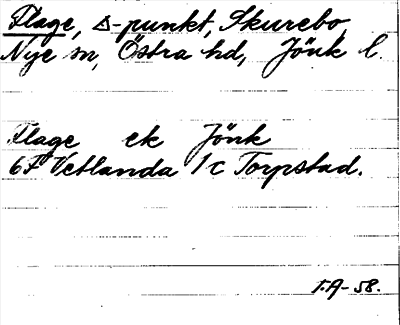 Flage, △-punkt, Skurebo,
Nye sn, Östra hd, Jönk l.
Flage ek Jönk
6F Vetlanda 1c Torpstad.
F.A-58.